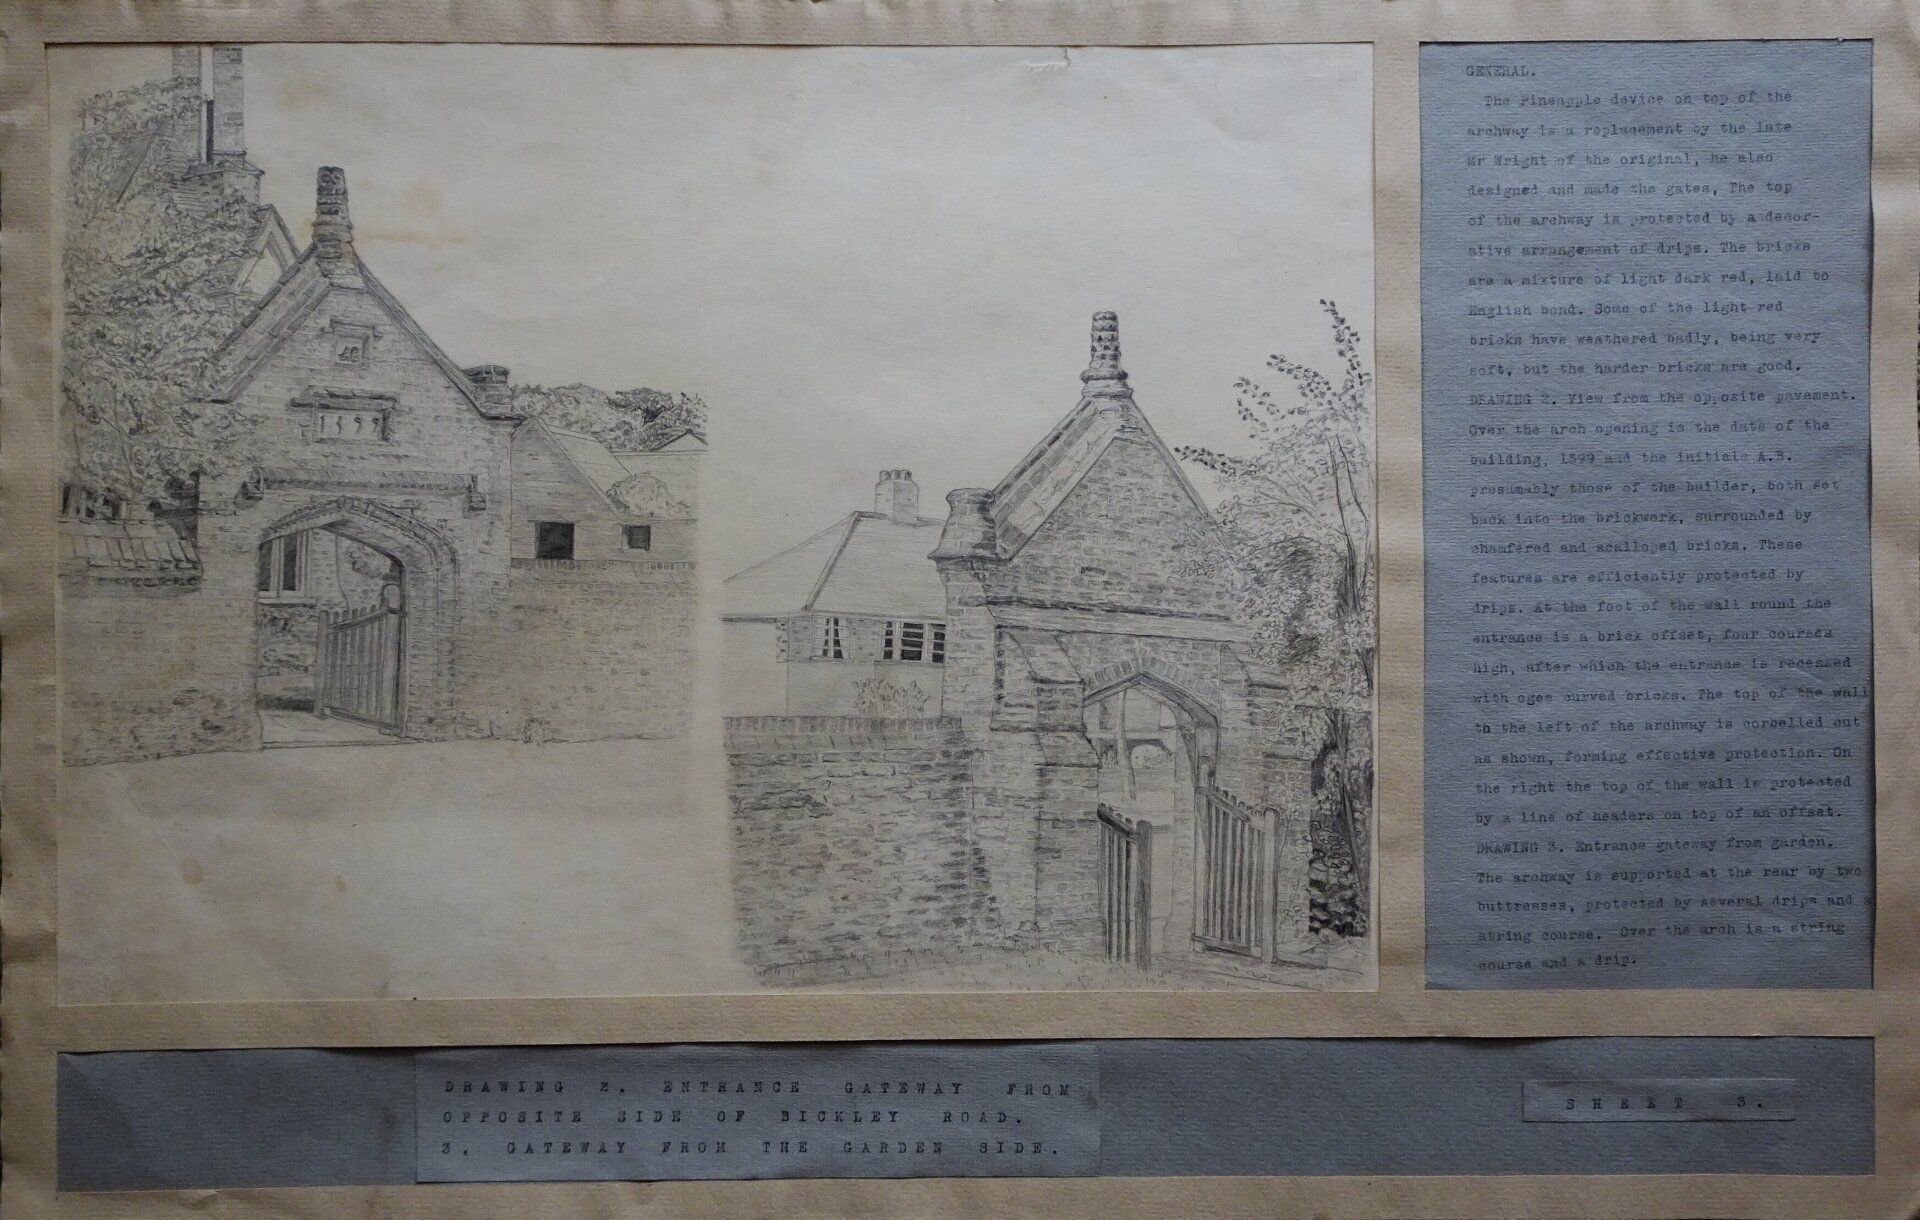 AB
1599
GENERAL.
The Pineapple device on top of the
archway is a replacement by the late
Mr Wright of the original, he also
designed and made the gates, The top
of the archway is protected by a decor-
ative arrangement of drips. The bricks
are a mixture of light dark red, laid to
English bond. Some of the light red
bricks have weathered badly, being very
soft, but the harder bricks are good.
DRAWING 2. View from the opposite pavement.
Over the arch opening is the date of the
building, 1599 and the initials A.B.
presumably those of the builder, both set
back into the brickwork, surrounded by
chamfered and scalloped bricks. These
features are efficiently protected by
drips. At the foot of the wall round the
entrance is a brick offset, four courses
high, after which the entrance is recessed
with ogee curved bricks. The top of the wall
th the left of the archway is corbelled out
as shown, forming effective protection. On
the right the top of the wall is protected
by a line of headers on top of an offset.
DRAWING 3. Entrance gateway from garden.
The archway is supported at the rear by two
buttresses, protected by several drips and a
string course. Over the arch is a string
course and a drip.
DRAWING 2. ENTRANCE GATEWAY FROM
OPPOSITE SIDE OF BICKLEY ROAD.
3. GATEWAY FROM THE GARDEN SIDE.
SHEET 3.